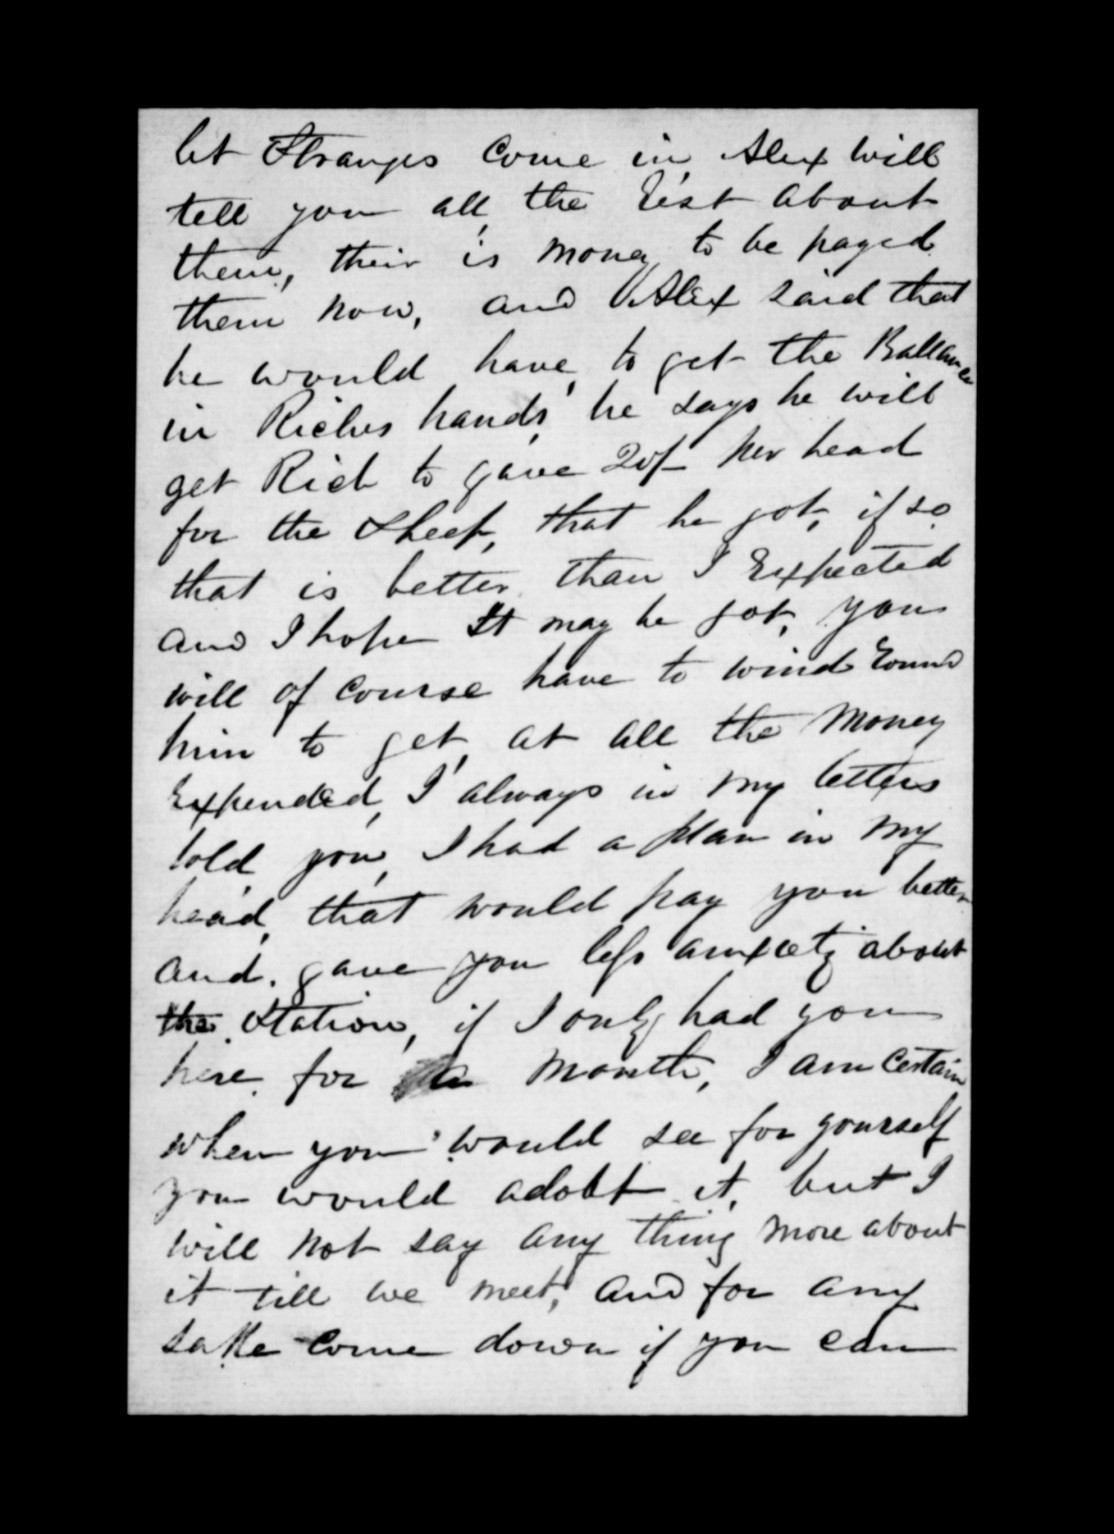 let Stranges come in, Alex will
tell you all, the rest about
them, their is money to be payed
them now, and Alex said that
he would have, to get the Ballance
in Riches hands, he says he will
get Rich to gave 20/- per head
for the Sheep, that he got, if so
that is better than I Expected
and I hope It may be got, you
will of course have to wind round
him to get, at all the money
Expended, I always in my letters
told you, I had a plan in my
head, that would pay you better
and. gave you less anxiety about
the Station, if I only had you
here for a month, I am certain
when you would see for yourself
you would adobt it, but I
will not say any thing more about
it till we meet, and for any
sake come down if you can